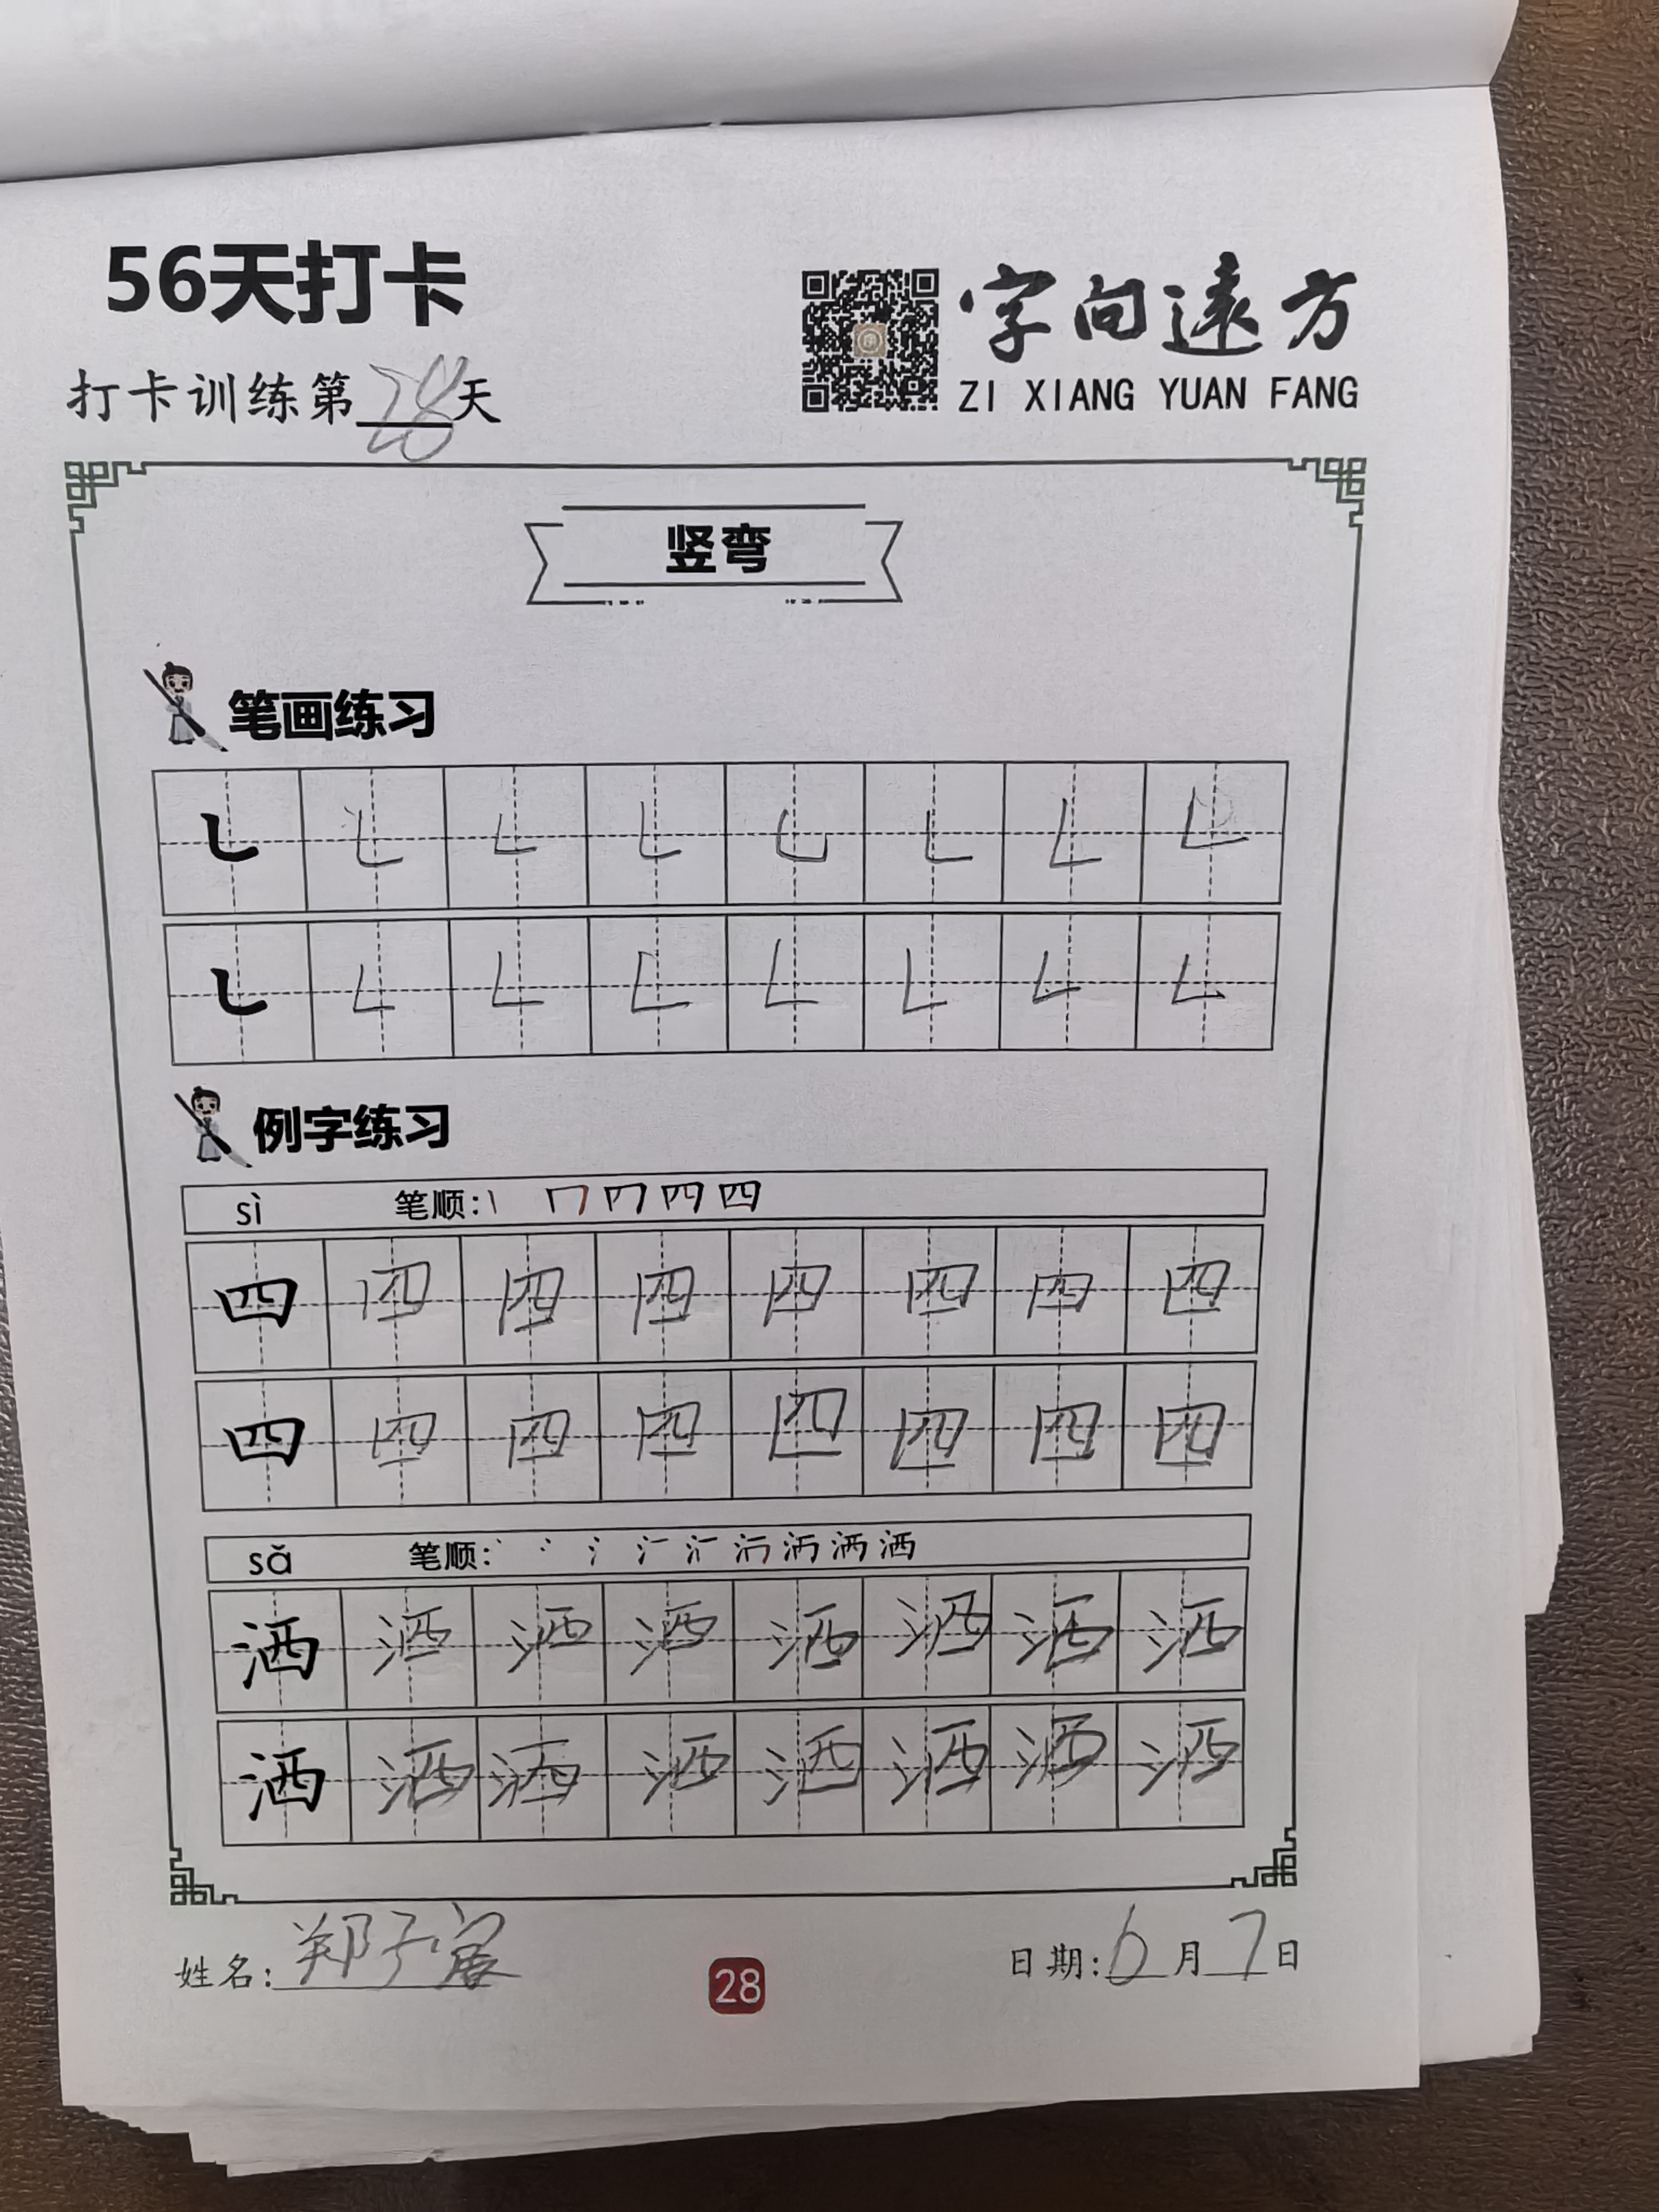 56天打卡
打卡训练第28天
字向遠方
ZI XIANG YUAN FANG
竖弯
笔画练习
例字练习
sì 笔顺:
四 四 四 四 四 四 四 四
四 四 四 四 四 四 四 四
sǎ 笔顺:
洒 洒 洒 洒 洒 洒 洒 洒
洒 洒 洒 洒 洒 洒 洒 洒
姓名:郑子宸
28
日期:6月7日